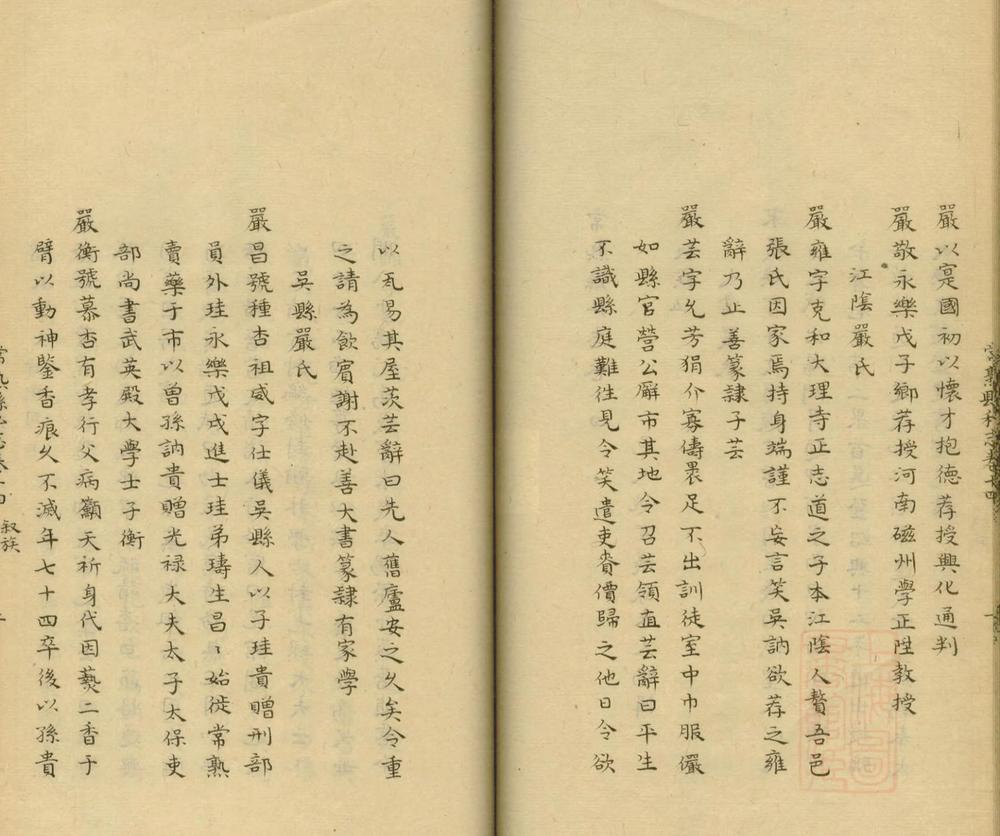 嚴以寔國初以懷才抱德荐授興化通判
嚴敬永樂戊子鄉荐授河南磁州學正陞教授
江陰嚴氏
嚴雍字克和大理寺正志道之子本江陰人贅吾邑
張氏因家焉持身端謹不妄言笑吳訥欲荐之雍
辭乃止善篆隷子芸
嚴芸字允芳狷介寡儔褁足不出訓徒室中巾服儼
如縣官營公廨市其地令召芸領直芸辭曰平生
不識縣庭難徃見令笑遣吏賫價歸之他日令欲
以瓦易其屋茨芸辭曰先人舊廬安之久矣令重
之請為飲賔謝不赴善大書篆隷有家學
吳縣嚴氏
嚴昌號種杏祖威字仕儀吳縣人以子珪貴贈刑部
員外珪永樂戊戌進士珪弟璹生昌〻始徙常熟
賣藥于市以曾孫訥貴贈光禄大夫太子太保吏
部尚書武英殿大學士子衡
嚴衡號慕杏有孝行父病籲天祈身代因爇二香于
臂以動神鑒香痕久不滅年七十四卒後以孫貴
叙族